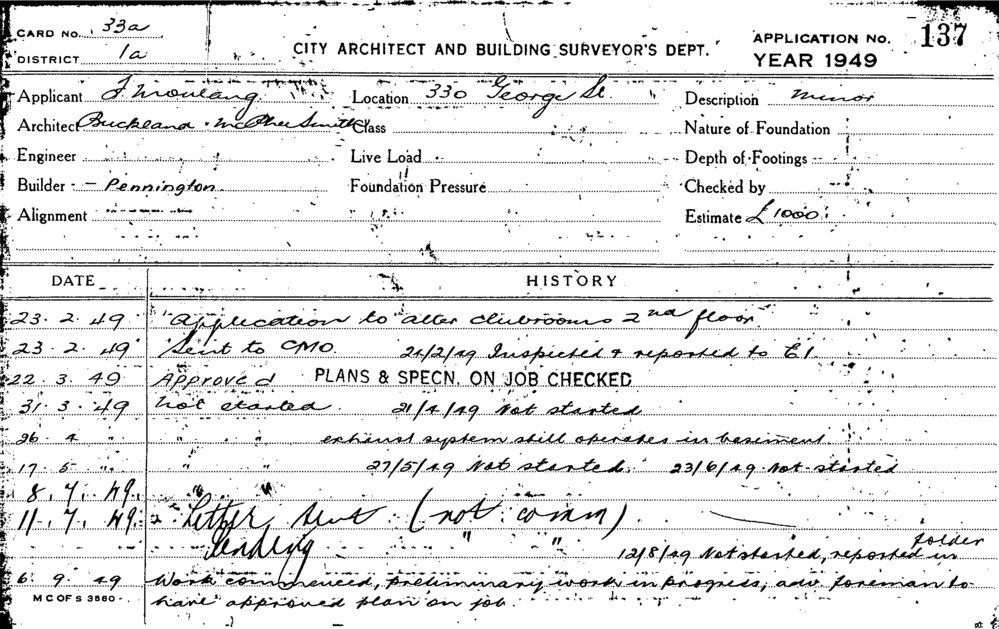 CARD NO. 33a
CITY ARCHITECT AND BUILDING SURVEYOR'S DEPT.
APPLICATION NO. 137
DISTRICT 1a
YEAR 1949
Applicant J. Moulang Location 330 George St. Description minor
Architect Buckland & McPhee Smith Class Nature of Foundation
Engineer Live Load Depth of Footings
Builder - Pennington Foundation Pressure Checked by
Alignment Estimate £1000
DATE HISTORY
23.2.49 Application to alter clubrooms 2nd floor
23.2.49 Sent to CMO. 24/2/49 Inspected & reported to E1.
22.3.49 Approved PLANS & SPECN. ON JOB CHECKED
31.3.49 Not started. 21/4/49 Not started
26.4 " " " exhaust system still operates in basement
17.5 " " " 27/5/49 Not started. 23/6/49 Not started
8.7.49 " "
11.7.49 Letter sent (not comm)
Pending " " folder
12/8/49 Not started, reported in
6.9.49 Work commenced, preliminary work in progress, adv. foreman to
M C OF S 3560 have approved plan on job.